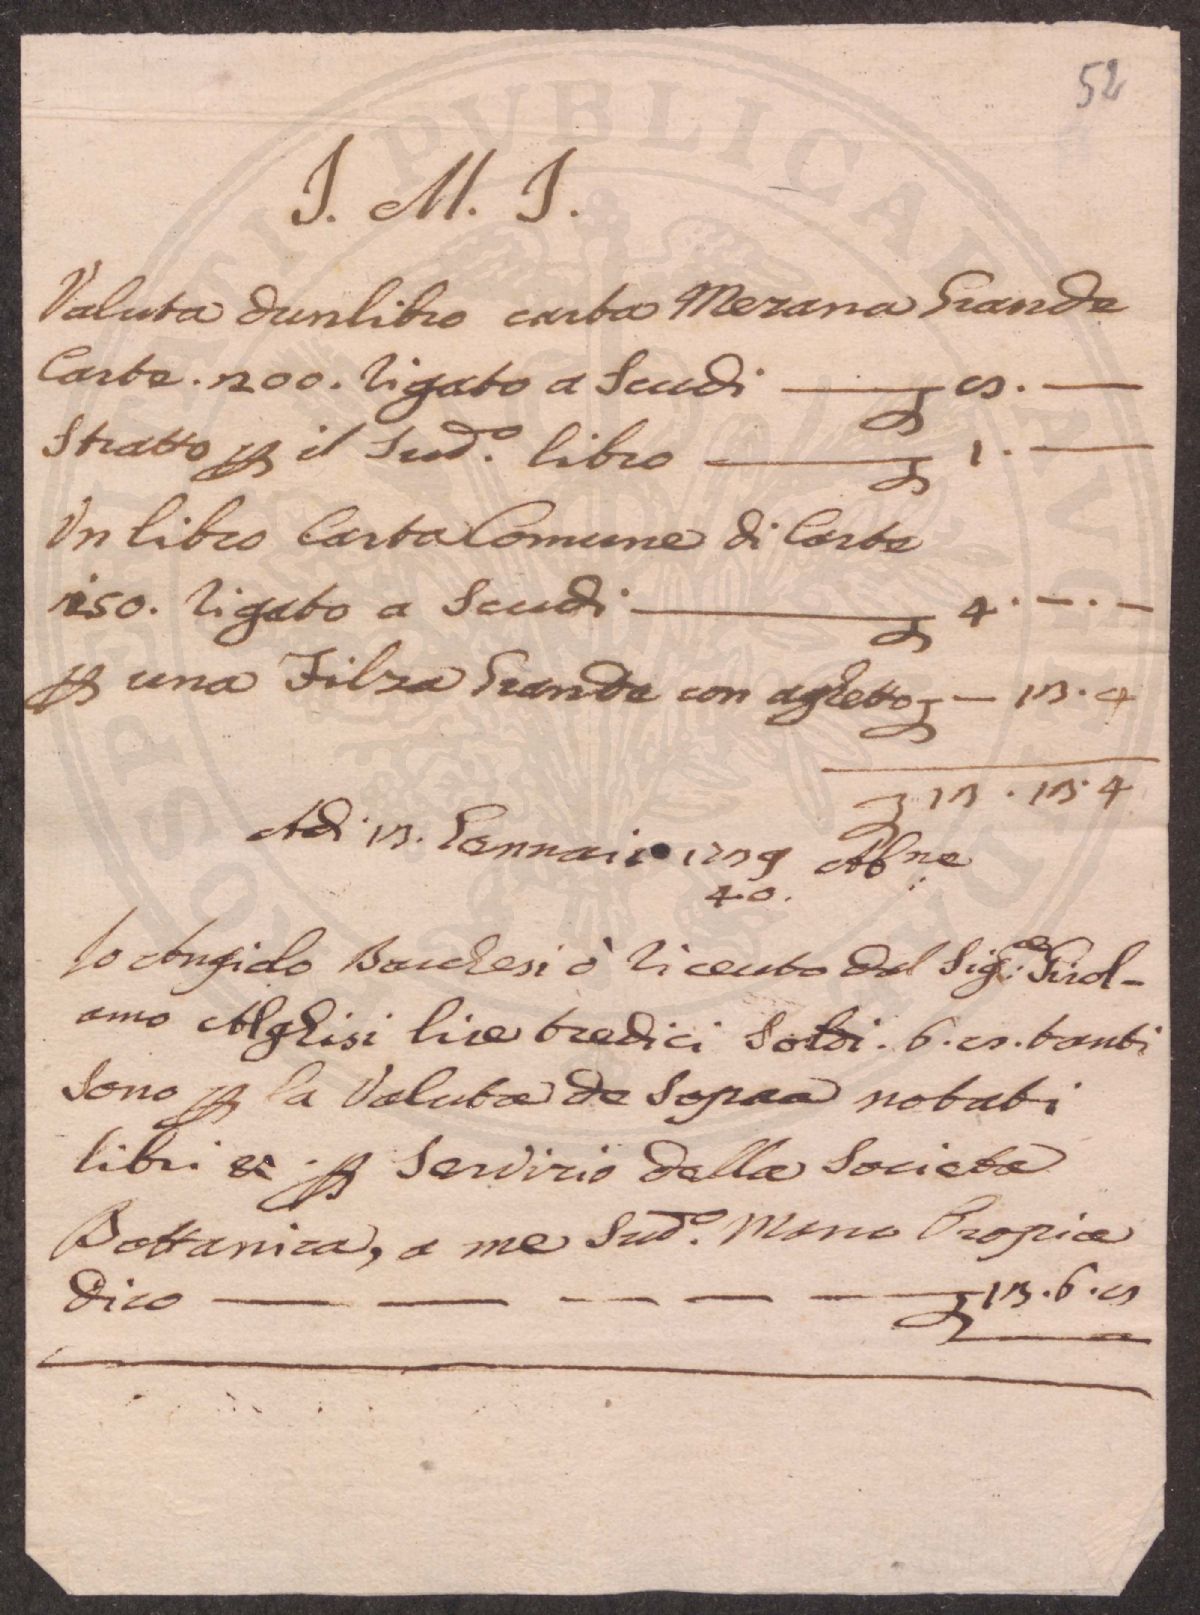 52
J. M. J.
Valuta dun libro carta Mezana Grande
Carte. 200. ligato a Scudi — 8. —
Stratto p il Sud.o libro — 1. —
Un libro Carta Comune di Carte
150. ligato a Scudi — 4. — . —
p una Filza Grande con aghetto — 13. 4
13. 13. 4
Adi 13. Gennaio 1739
40.
Io Angiolo Bacchesi ò riceuto dal Sig.re Girol-
amo Alghisi lire tredici Soldi. 6. 8. tanti
Sono p la Valuta de Sopraa notati
libri &c p Servizio della Societa
Bottanica, a me Sud.o Mano Propria
dico — — — — — 13. 6. 8